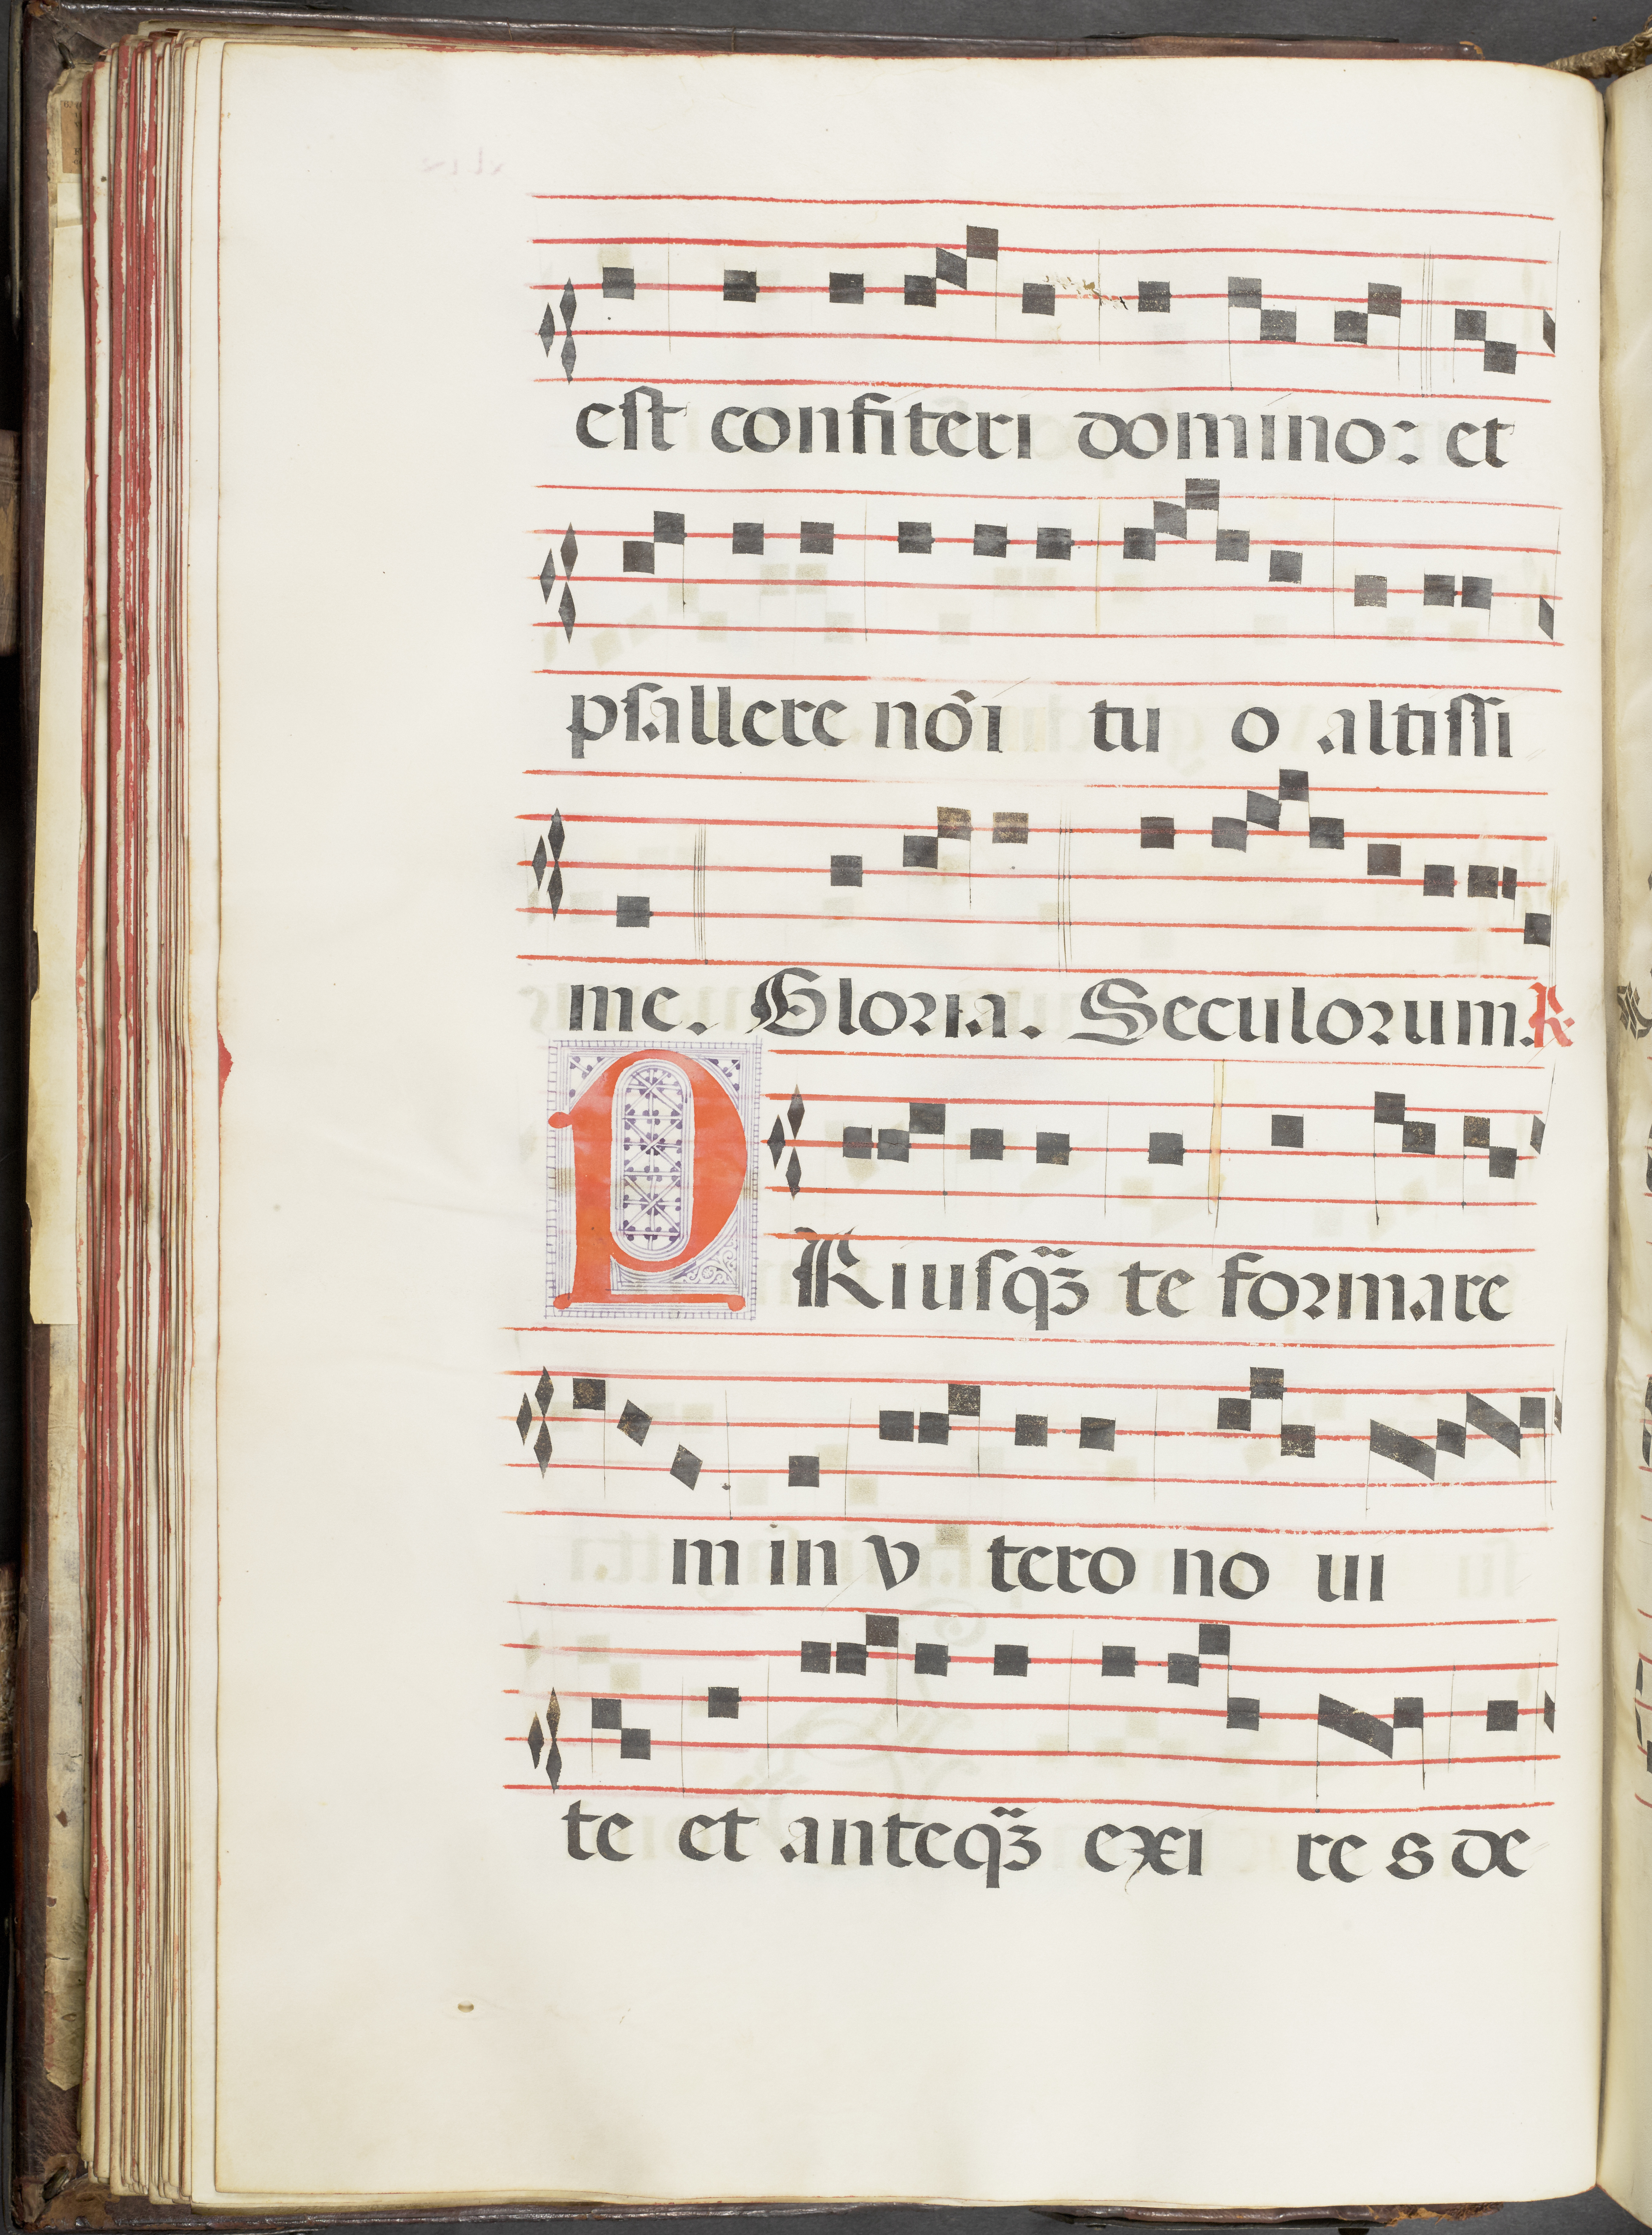 est confiteri domino: et
psallere nōi tuo altissi
me. Gloria. Seculorum. R.
PRiusq̃ȝ te formare
m in vtero noui
te et anteq̃ȝ exires de